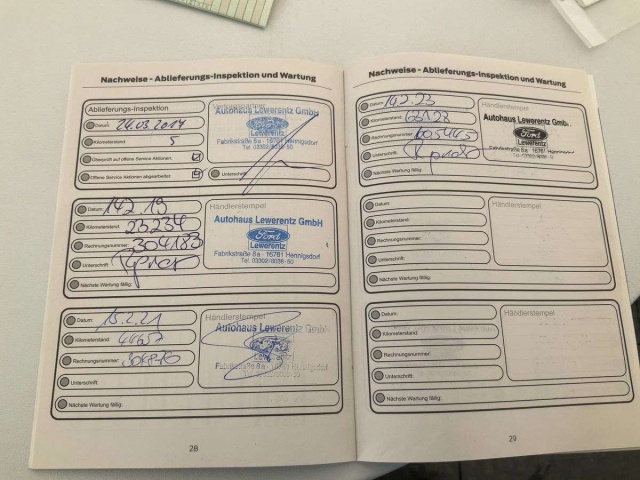 Nachweise - Ablieferungs-Inspektion und Wartung
Ablieferungs-Inspektion
Datum: 24.03.2017
Kilometerstand: 5
Überprüft auf offene Service Aktionen:
Offene Service Aktionen abgearbeitet:
Autohaus Lewerentz GmbH
Ford
Lewerentz
Fabrikstraße 8a · 16761 Hennigsdorf
Tel. 03302/8038-50
Unterschrift:
Datum: 14.2.19
Kilometerstand: 23234
Rechnungsnummer: 304183
Unterschrift:
Nächste Wartung fällig:
Händlerstempel
Autohaus Lewerentz GmbH
Ford
Lewerentz
Fabrikstraße 8a · 16761 Hennigsdorf
Tel. 03302/8038-50
Datum: 15.2.21
Kilometerstand: 44657
Rechnungsnummer:
Unterschrift:
Nächste Wartung fällig:
Händlerstempel
Autohaus Lewerentz GmbH
Fabrikstraße 8a · 16761 Hennigsdorf
28
Nachweise - Ablieferungs-Inspektion und Wartung
Datum: 14.2.23
Kilometerstand:
Rechnungsnummer: 605445
Unterschrift:
Nächste Wartung fällig:
Händlerstempel
Autohaus Lewerentz GmbH
Ford
Lewerentz
Fabrikstraße 8a · 16761 Hennigsdorf
Datum:
Kilometerstand:
Rechnungsnummer:
Unterschrift:
Nächste Wartung fällig:
Händlerstempel
Datum:
Kilometerstand:
Rechnungsnummer:
Unterschrift:
Nächste Wartung fällig:
Händlerstempel
29